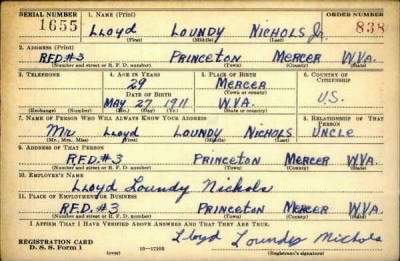 SERIAL NUMBER 1. NAME (Print) ORDER NUMBER
1655 LLOYD LOUNDY NICHOLS Jr. 838
(First) (Middle) (Last)
2. ADDRESS (Print)
R.F.D. #3 PRINCETON MERCER W.VA.
(Number and street or R. F. D. number) (Town) (County) (State)
3. TELEPHONE 4. AGE IN YEARS 5. PLACE OF BIRTH 6. COUNTRY OF CITIZENSHIP
29 MERCER
DATE OF BIRTH (Town or county)
MAY 27 1911 W.VA. U.S.
(Exchange) (Number) (Mo.) (Day) (Yr.) (State or country)
7. NAME OF PERSON WHO WILL ALWAYS KNOW YOUR ADDRESS 8. RELATIONSHIP OF THAT PERSON
Mr Lloyd LOUNDY NICHOLS UNCLE
(Mr., Mrs., Miss) (First) (Middle) (Last)
9. ADDRESS OF THAT PERSON
R.F.D. #3 PRINCETON MERCER W.VA.
(Number and street or R. F. D. number) (Town) (County) (State)
10. EMPLOYER'S NAME
Lloyd Loundy Nichols
11. PLACE OF EMPLOYMENT OR BUSINESS
R.F.D. #3 PRINCETON MERCER W.VA.
(Number and street or R. F. D. number) (Town) (County) (State)
I AFFIRM THAT I HAVE VERIFIED ABOVE ANSWERS AND THAT THEY ARE TRUE.
REGISTRATION CARD
D. S. S. Form 1 16—17105 Lloyd Loundy Nichols
(Registrant's signature)